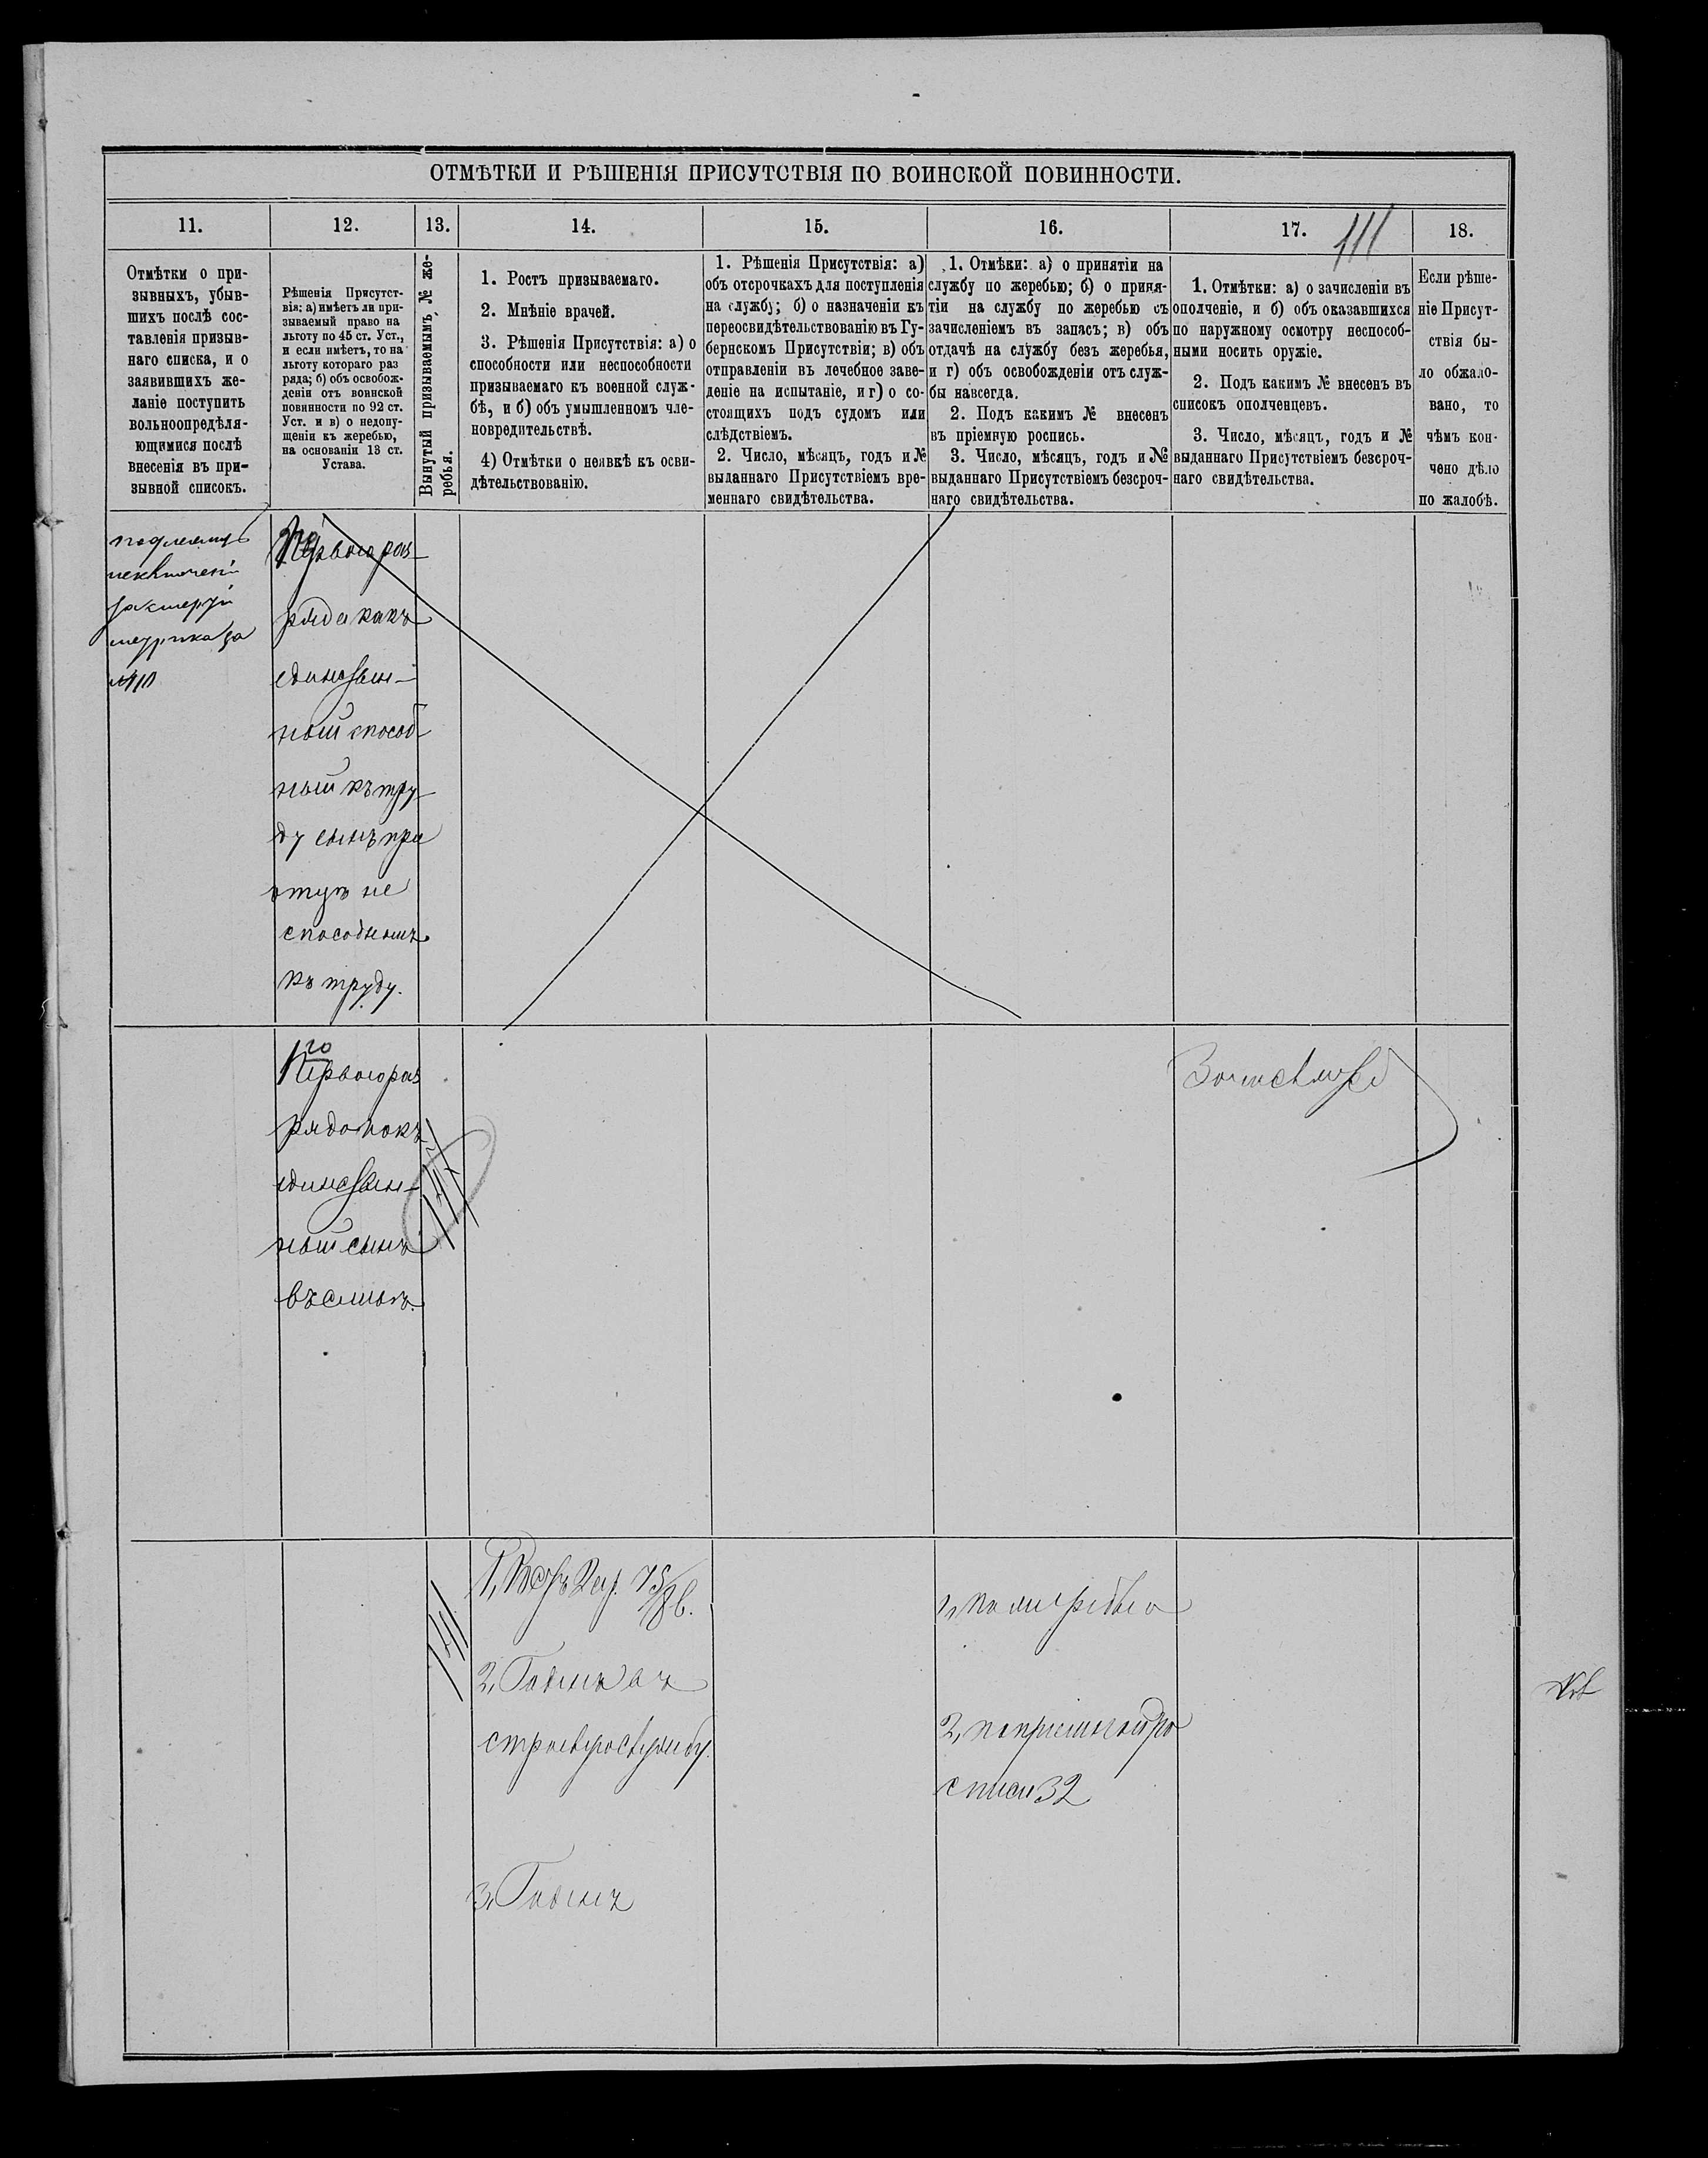 ОТМѢТКИ И РѢШЕНІЯ ПРИСУТСТВІЯ ПО ВОИНСКОЙ ПОВИННОСТИ.
11.
12.
13.
14.
15.
16.
17.
111
18.
Отмѣтки о при-
зывныхъ, убыв-
шихъ послѣ сос-
тавленія призыв-
наго списка, и о
заявившихъ же-
ланіе поступить
вольноопредѣля-
ющимися послѣ
внесенія въ при-
зывной списокъ.
Рѣшенія Присутст-
вія: а) имѣетъ ли при-
зываемый право на
льготу по 45 ст. Уст.,
и если имѣетъ, то на
льготу котораго раз
ряда; б) объ освобож-
деніи отъ воинской
повинности по 92 ст.
Уст. и в) о недопу-
щеніи къ жеребью,
на основаніи 13 ст.
Устава.
Вынутый призываемымъ № же-
ребья.
1. Ростъ призываемаго.
2. Мнѣніе врачей.
3. Рѣшенія Присутствія: а) о
способности или неспособности
призываемаго къ военной служ-
бѣ, и б) объ умышленномъ чле-
новредительствѣ.
4) Отмѣтки о неявкѣ къ осви-
дѣтельствованію.
1. Рѣшенія Присутствія: а)
объ отсрочкахъ для поступленія
на службу; б) о назначеніи къ
переосвидѣтельствованію въ Гу-
бернскомъ Присутствіи; в) объ
отправленіи въ лечебное заве-
деніе на испытаніе, и г) о со-
стоящихъ подъ судомъ или
слѣдствіемъ.
2. Число, мѣсяцъ, годъ и №
выданнаго Присутствіемъ вре-
меннаго свидѣтельства.
1. Отмѣки: а) о принятіи на
службу по жеребью; б) о приня-
тіи на службу по жеребью съ
зачисленіемъ въ запасъ; в) объ
отдачѣ на службу безъ жеребья,
и г) объ освобожденіи отъ служ-
бы навсегда.
2. Подъ какимъ № внесенъ
въ пріемную роспись.
3. Число, мѣсяцъ, годъ и №
выданнаго Присутствіемъ безсроч-
наго свидѣтельства.
1. Отмѣтки: а) о зачисленіи въ
ополченіе, и б) объ оказавшихся
по наружному осмотру неспособ-
ными носить оружіе.
2. Подъ какимъ № внесенъ въ
списокъ ополченцевъ.
3. Число, мѣсяцъ, годъ и №
выданнаго Присутствіемъ безсроч-
наго свидѣтельства.
Если рѣше-
ніе Присут-
ствія бы-
ло обжало-
вано, то
чѣмъ кон-
чено дѣло
по жалобѣ.
за смертію
Перваго раз-
ряда какъ
единствен-
ный способ-
ный къ тру-
ду сынъ при
отцѣ не
способномъ
къ труду.
1го
Перваго раз
ряда какъ
единствен-
ный сынъ
въ семьѣ.
1,
2, Годенъ къ
строевую службу.
3, Годенъ
1, по жеребью
2, по пріемной ро
списи 32